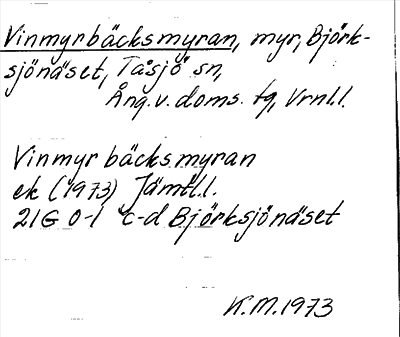 Vinmyrbäcksmyran, myr, Björk-
sjönäset, Tåsjö sn,
Ång. v. doms. tg, Vrnl.l.
Vinmyrbäcksmyran
ek (1973) Jämtl.l.
21G 0-1 c-d Björksjönäset
K.M. 1973